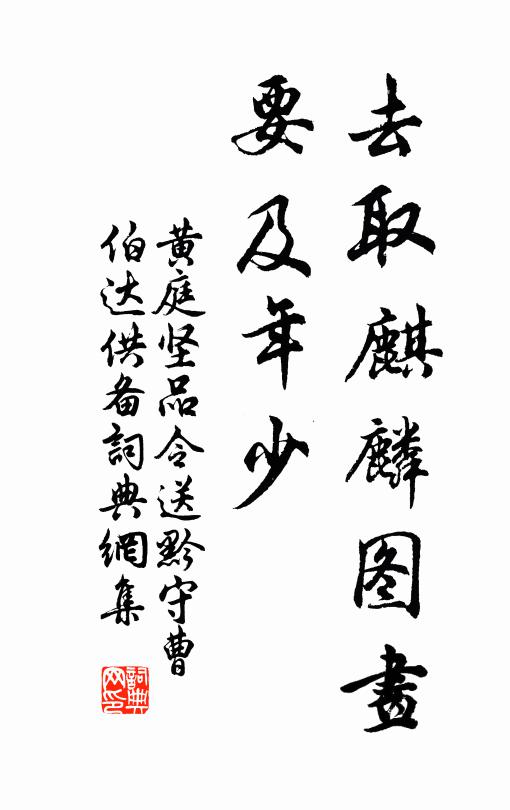 去取麒麟图畫
要及年少
黄庭坚品令送黔守曹
伯达供备詞典網集
詞典网印